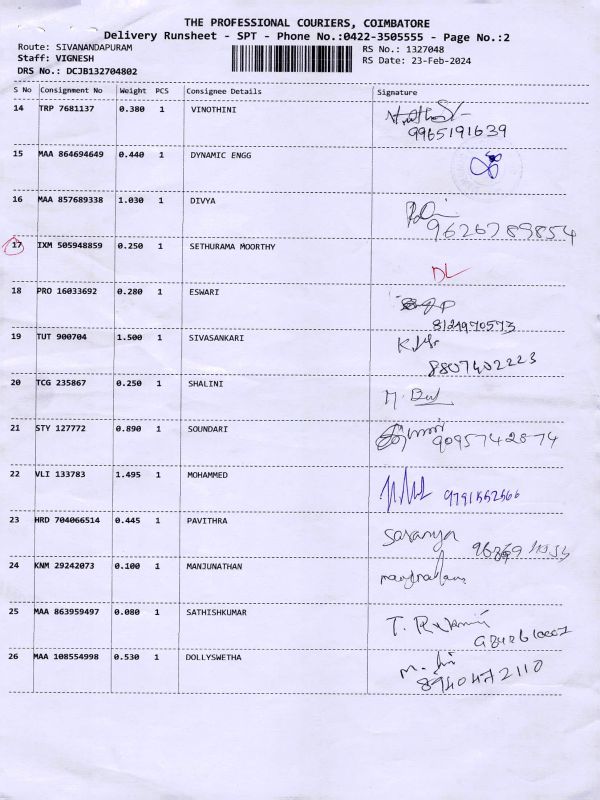 THE PROFESSIONAL COURIERS, COIMBATORE
Delivery Runsheet - SPT - Phone No.:0422-3505555 - Page No.:2
Route: SIVANANDAPURAM RS No.: 1327048
Staff: VIGNESH RS Date: 23-Feb-2024
DRS No.: DCJB132704802
S No Consignment No Weight PCS Consignee Details Signature
14 TRP 7681137 0.380 1 VINOTHINI
9965191639
15 MAA 864694649 0.440 1 DYNAMIC ENGG
16 MAA 857689338 1.030 1 DIVYA
9626789854
17 IXM 505948859 0.250 1 SETHURAMA MOORTHY
DL
18 PRO 16033692 0.280 1 ESWARI
8124970573
19 TUT 900704 1.500 1 SIVASANKARI
8807402223
20 TCG 235867 0.250 1 SHALINI
21 STY 127772 0.890 1 SOUNDARI
9095742874
22 VLI 133783 1.495 1 MOHAMMED
9791552566
23 HRD 704066514 0.445 1 PAVITHRA
Saranya
24 KNM 29242073 0.100 1 MANJUNATHAN
25 MAA 863959497 0.080 1 SATHISHKUMAR
26 MAA 108554998 0.530 1 DOLLYSWETHA
8940472110